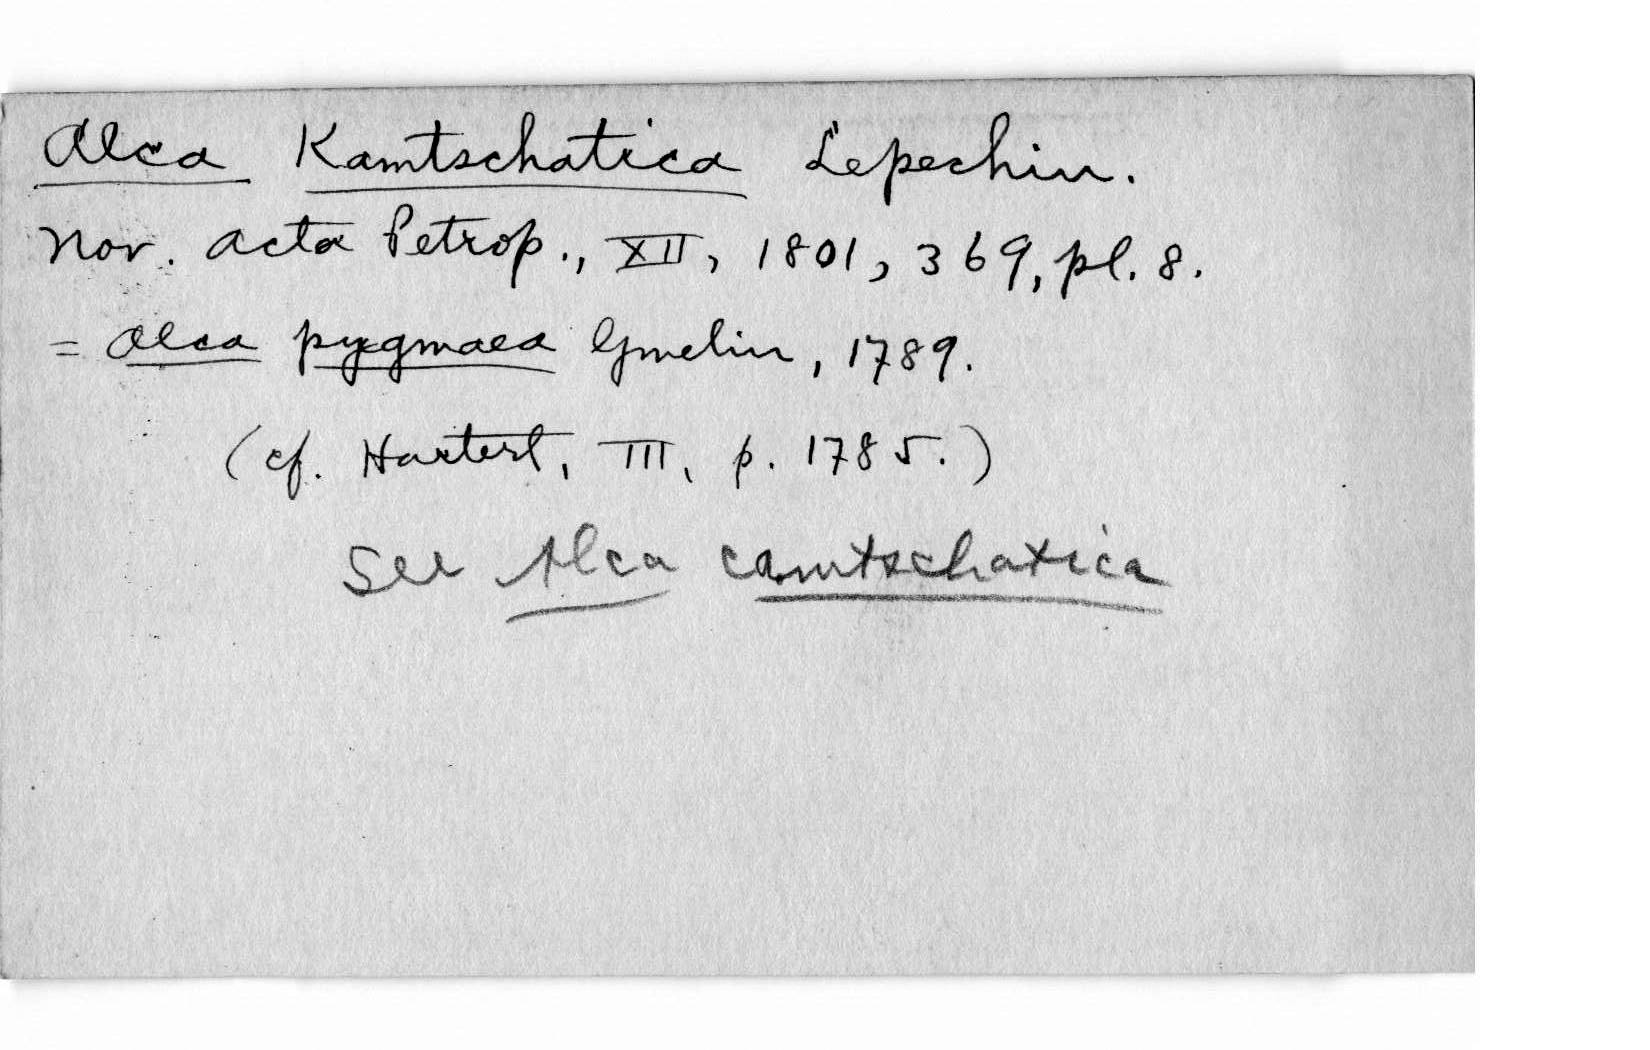 Alca Kamtschatica Lepechin.
Nov. Acta Petrop., XII, 1801, 369, pl. 8.
= Alca pygmaea Gmelin, 1789.
(cf. Hartert, III, p. 1785.)
See Alca camtschatica